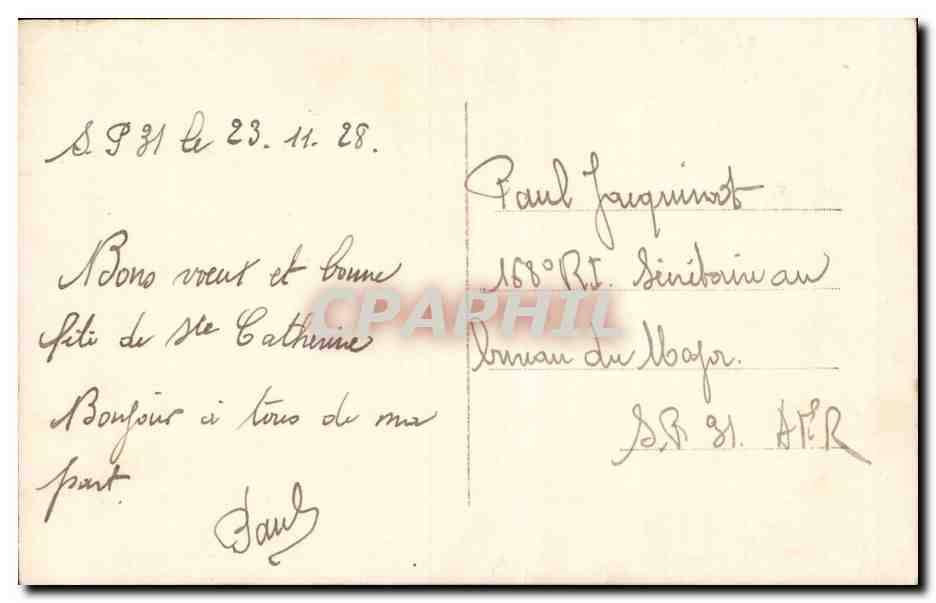 S.P 31 le 23. 11. 28.
Bons voeux et bonne
fête de Ste Catherine
Bonjour à tous de ma
part.
Paul
Paul Jacquinot
168° RI. Sécrétaire au
bureau du Major.
S.P. 31. AFR
CPAPHIL